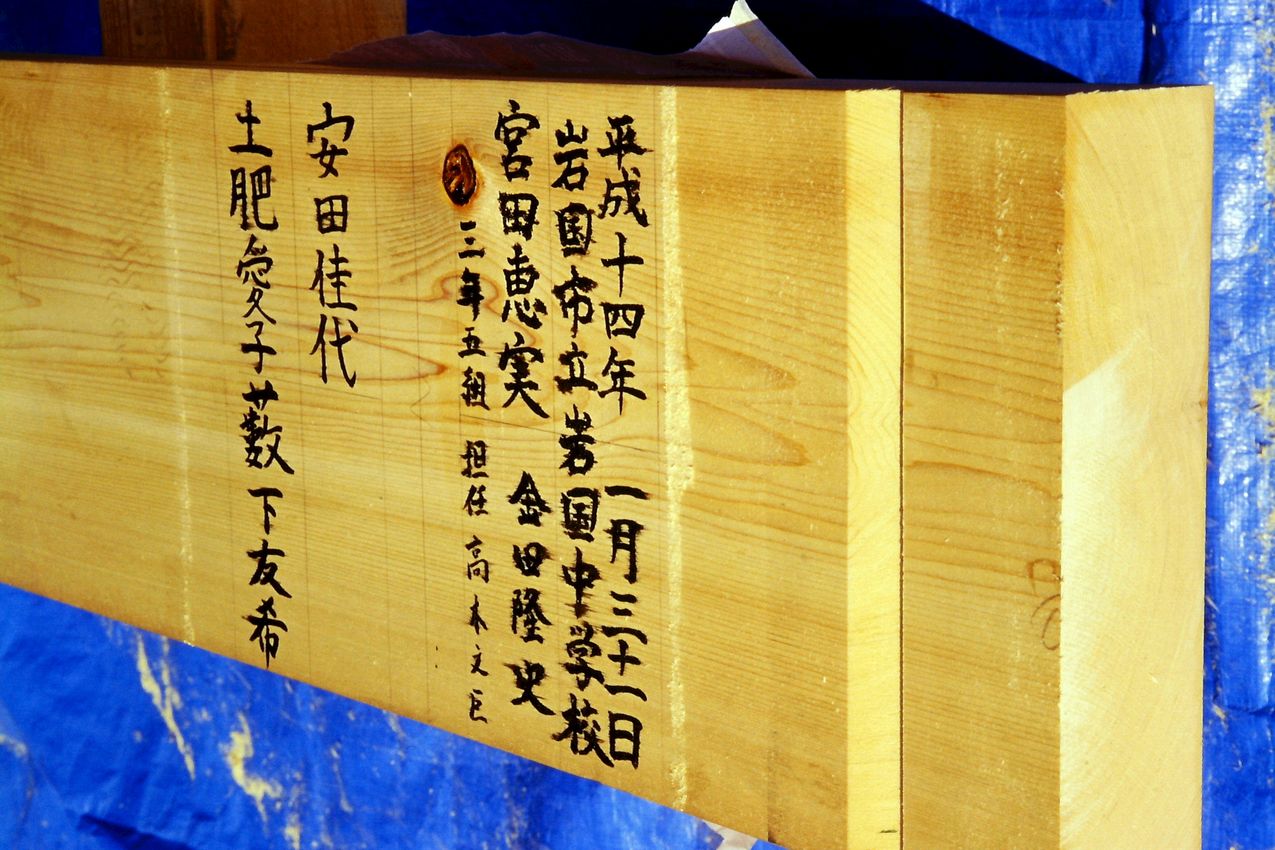 平成十四年一月三十一日
岩国市立岩国中学校
宮田恵実 金田隆史
三年五組 担任 高木文臣
安田佳代
土肥愛子 藪下友希